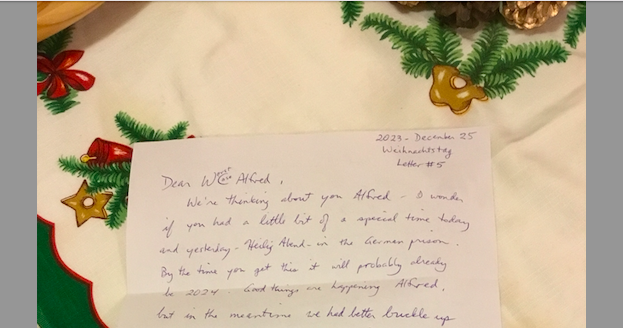 2023 - December 25
Weihnachtstag
Letter #5
Dear Alfred,
We're thinking about you Alfred - I wonder
if you had a little bit of a special time today
and yesterday - Heilig Abend - in the German prison.
By the time you get this it will probably already
be 2024. Good things are happening Alfred,
but in the meantime we had better buckle up